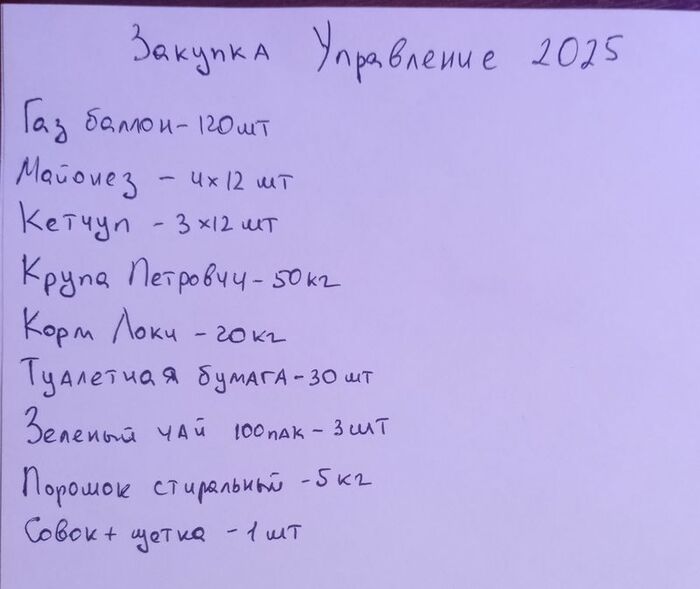 Закупка Управление 2025
Газ баллон - 120 шт
Майонез - 4 х 12 шт
Кетчуп - 3 х 12 шт
Крупа Петрович - 50 кг
Корм Локи - 20 кг
Туалетная бумага - 30 шт
Зеленый чай 100 пак - 3 шт
Порошок стиральный - 5 кг
Совок + щетка - 1 шт